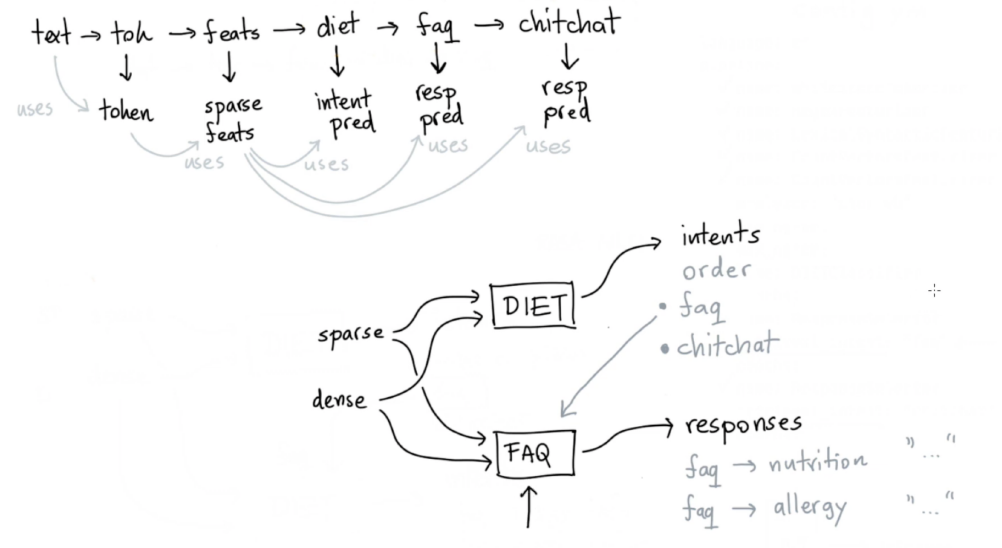 text → tok → feats → diet → faq → chitchat
uses
token
sparse
feats
intent
pred
resp
pred
resp
pred
uses
uses
uses
uses
intents
order
• faq
• chitchat
DIET
sparse
dense
FAQ
responses
faq → nutrition "..."
faq → allergy "..."